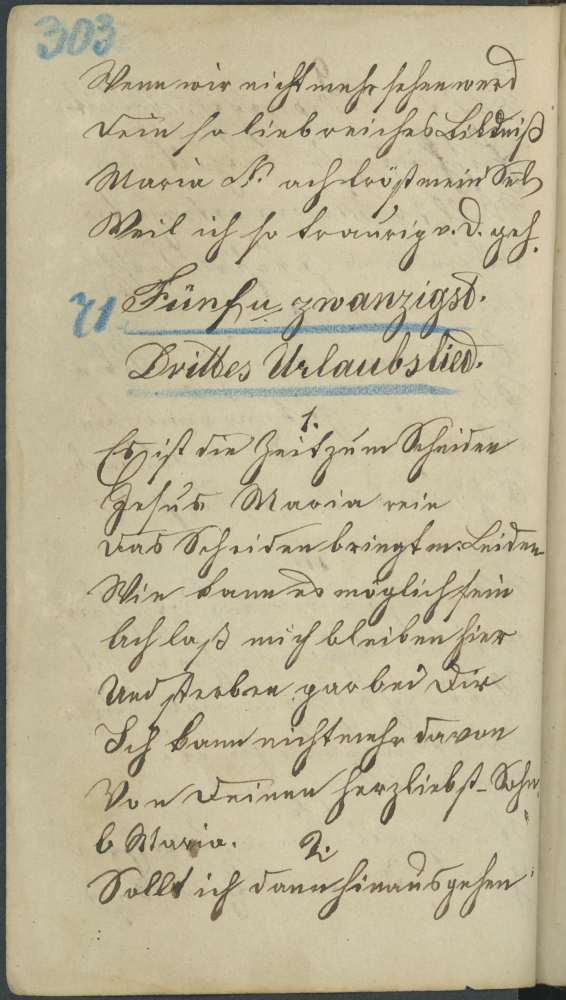 303
Wenn wir nicht mehr sehen werd
Dein so liebreiches Bildniß
Maria M. ach tröst mein Seel
Weil ich so traurig v. D. geh.
71 Fünf u. zwanzigst.
Drittes Urlaubslied.
1.
Es ist die Zeit zum Scheiden
Jesus Maria rein
Das Scheiden bringt m: Leiden
Wie kann es möglich sein
Ach laß mich bleiben hier
Und sterben gar bei Dir
Ich kann nicht mehr davon
Von Deinen herzliebst- Sohn
b Maria. 2.
Sollt ich dann hinausgehen